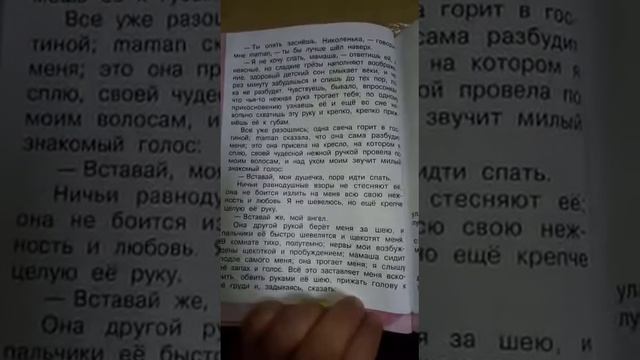 — Ты опять заснёшь, Николенька, — говорит
мне maman, — ты бы лучше шёл наверх.
— Я не хочу спать, мамаша, — ответишь ей, и
неясные, но сладкие грёзы наполняют воображе-
ние, здоровый детский сон смыкает веки, и че-
рез минуту забудешься и спишь до тех пор, пока
не разбудят. Чувствуешь, бывало, впросонках,
что чья-то нежная рука трогает тебя; по одному
прикосновению узнаёшь её и ещё во сне не-
вольно схватишь эту руку и крепко, крепко при-
жмёшь её к губам.
Все уже разошлись; одна свеча горит в гос-
тиной; maman сказала, что она сама разбудит
меня; это она присела на кресло, на котором я
сплю, своей чудесной нежной ручкой провела по
моим волосам, и над ухом моим звучит милый
знакомый голос:
— Вставай, моя душечка, пора идти спать.
Ничьи равнодушные взоры не стесняют её;
она не боится излить на меня всю свою неж-
ность и любовь. Я не шевелюсь, но ещё крепче
целую её руку.
— Вставай же, мой ангел.
Она другой рукой берёт меня за шею, и
пальчики её быстро шевелятся и щекотят меня.
В комнате тихо, полутемно; нервы мои возбуж-
дены щекоткой и пробуждением; мамаша сидит
подле самого меня; она трогает меня; я слышу
её запах и голос. Всё это заставляет меня вско-
чить, обвить руками её шею, прижать голову к
её груди и, задыхаясь, сказать: